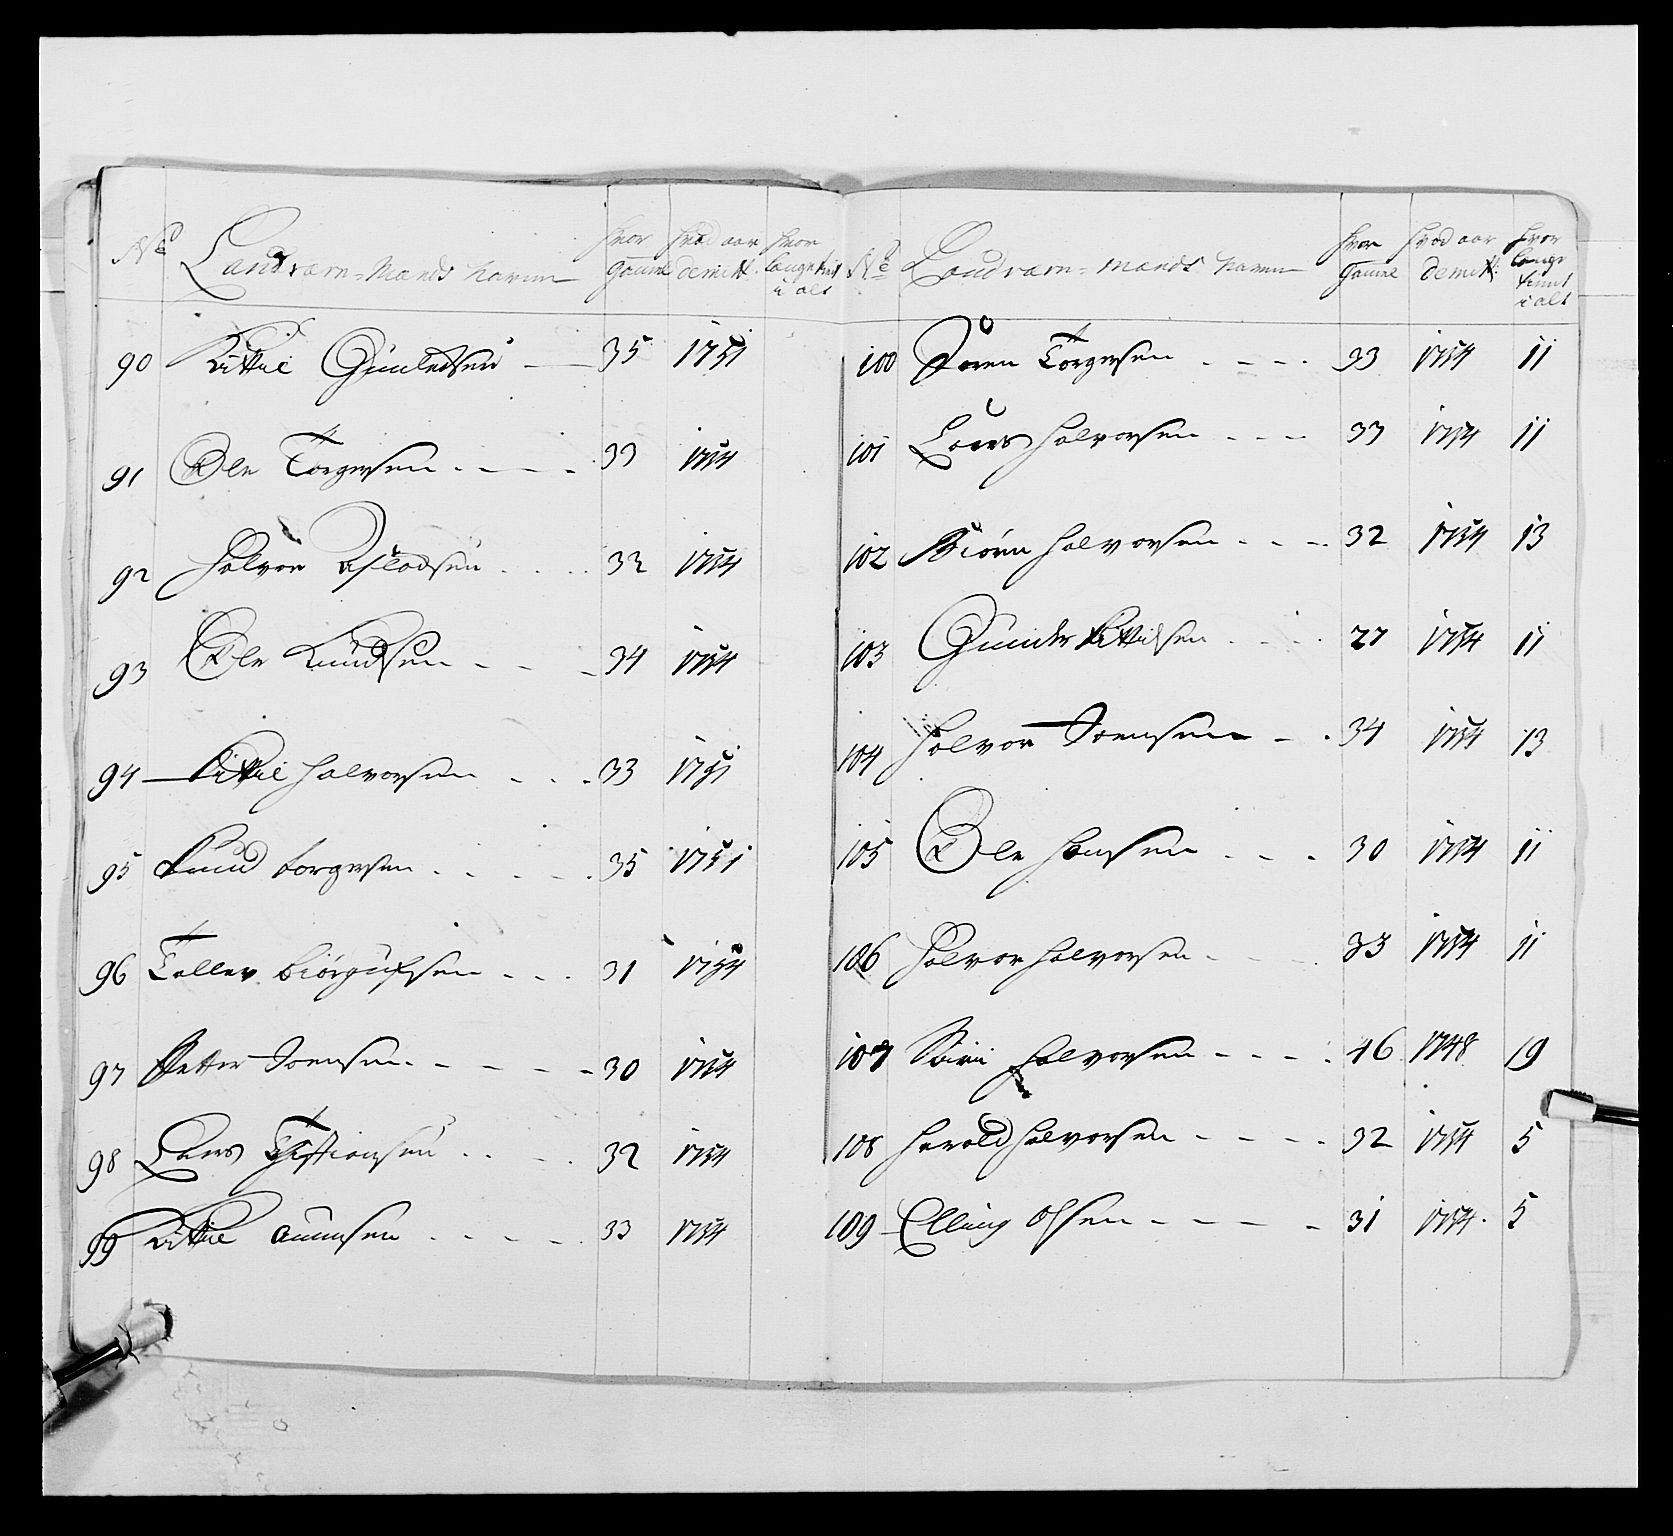 No Landværn=Mands Navne hvor gammel hvad aar demitt. hvor lange tient i alt
90 Kittil Gunledsen 35 1751
91 Ole Torgersen 33 1754
92 Halvor Asladsen 32 1754
93 Ole Knudsen 34 1754
94 Kittil Halvorsen 33 1751
95 Knud Torgersen 35 1751
96 Tallev Biørgufsen 31 1754
97 Petter Soensen 30 1754
98 Lars Christiansen 32 1754
99 Kittil Aunnsen 33 1754
No Landværn=Mands Navne hvor gammel hvad aar demitt: hvor lange tient i alt
100 Søren Torgersen 33 1754 11
101 Lars Halvorsen 33 1754 11
102 Biørn Halvorsen 32 1754 13
103 Gunder Kittilsen 27 1754 11
104 Halvor Soensen 34 1754 13
105 Ole Hansen 30 1754 11
106 Halvor Halvorsen 33 1754 11
107 Halvorsen 46 1748 19
108 Harald Halvorsen 32 1754 5
109 Elling Olsen 31 1754 5